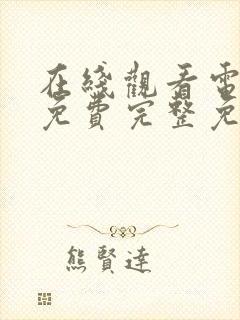 在綫觀看電
免費完整免
熊賢達